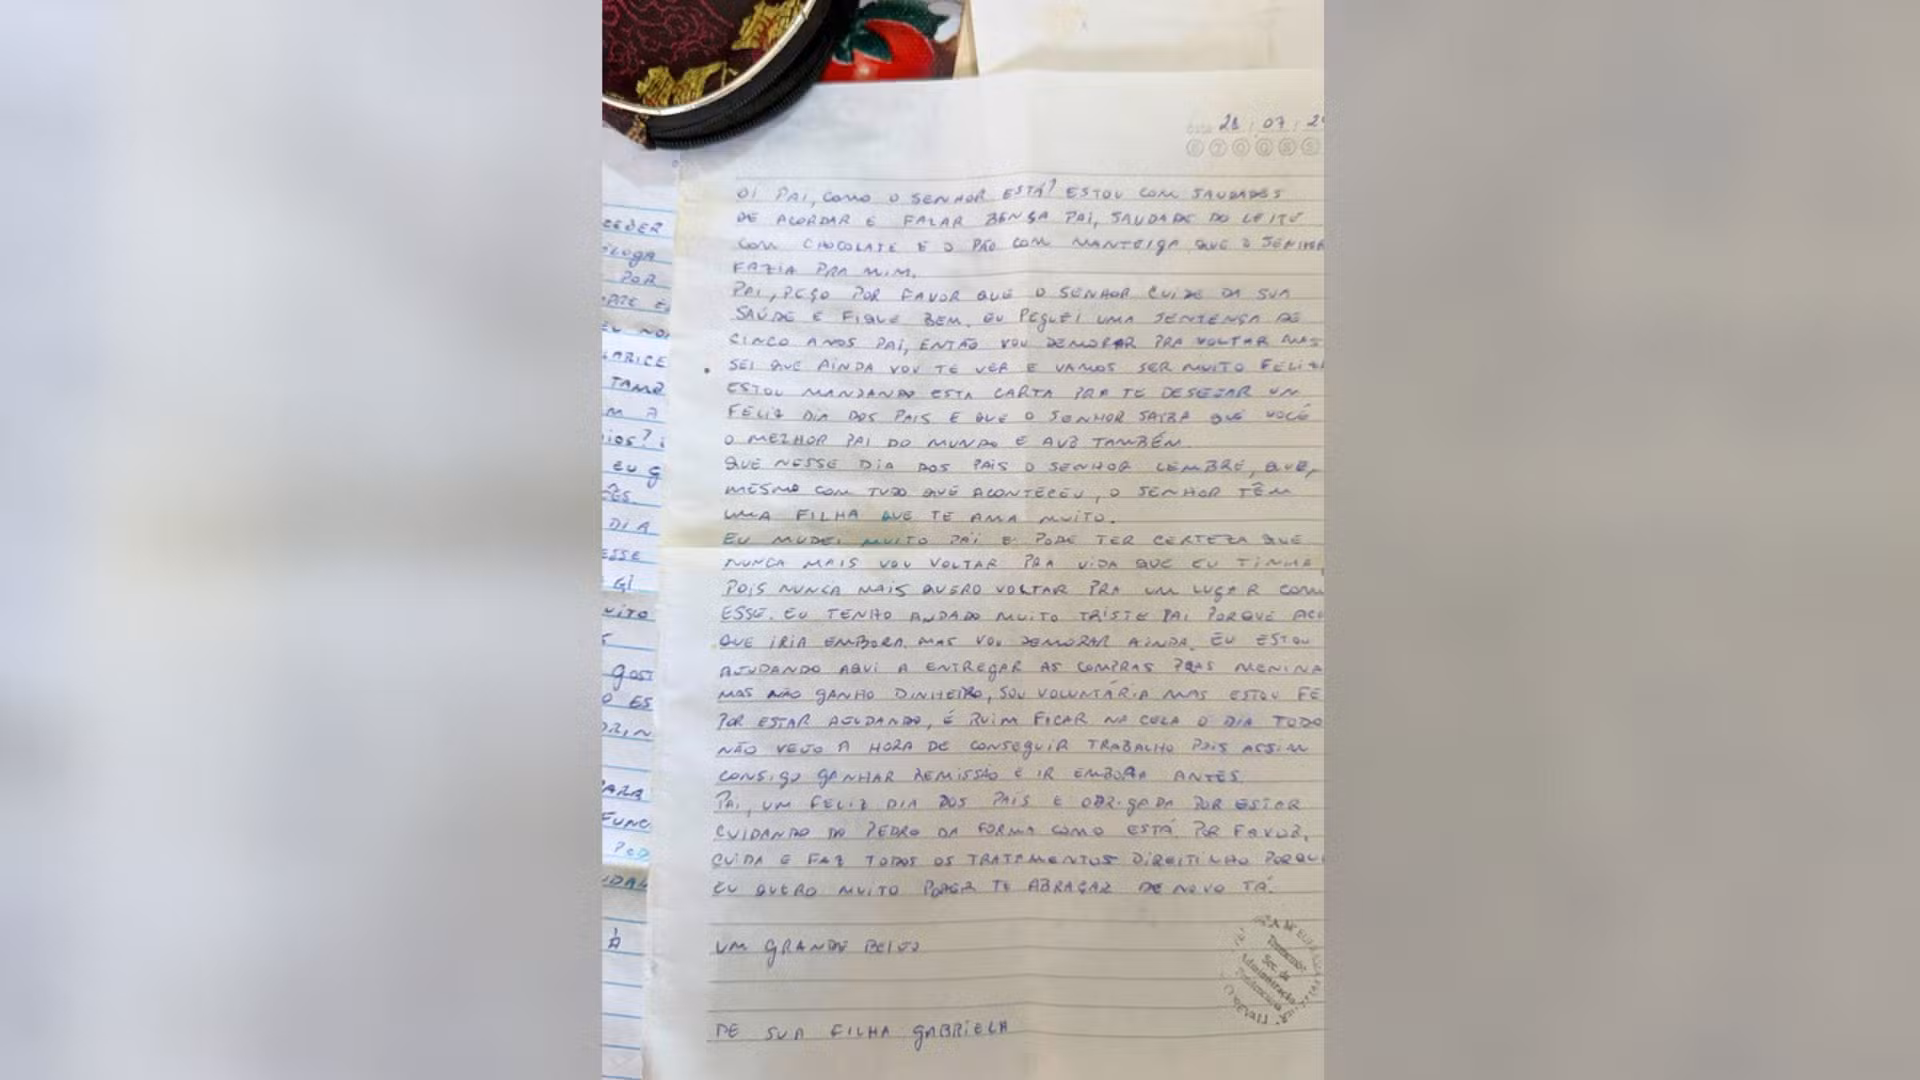 28 / 07 / 2
OI PAI, COMO O SENHOR ESTÁ? ESTOU COM SAUDADES
DE ACORDAR E FALAR BENSA PAI, SAUDADE DO LEITE
COM CHOCOLATE E O PÃO COM MANTEIGA QUE O SENHOR
FAZIA PRA MIM.
PAI, PEÇO POR FAVOR QUE O SENHOR CUIDE DA SUA
SAÚDE E FIQUE BEM. EU PEGUEI UMA SENTENSA DE
CINCO ANOS PAI, ENTÃO VOU DEMORAR PRA VOLTAR MAS
SEI QUE AINDA VOU TE VER E VAMOS SER MUITO
ESTOU MANDANDO ESTA CARTA PRA TE DESEJAR UM
FELIZ DIA DOS PAIS E QUE O SENHOR SAIBA QUE VOCÊ
O MELHOR PAI DO MUNDO E AVÔ TAMBÉM.
QUE NESSE DIA DOS PAIS O SENHOR LEMBRE, QUE,
MESMO COM TUDO QUE ACONTECEU, O SENHOR TÊM
UMA FILHA QUE TE AMA MUITO.
EU MUDEI MUITO PAI E PODE TER CERTEZA QUE
NUNCA MAIS VOU VOLTAR PRA VIDA QUE EU TINHA,
POIS NUNCA MAIS QUERO VOLTAR PRA UM LUGAR COM
ESSE. EU TENHO ANDADO MUITO TRISTE PAI PORQUE
QUE IRIA EMBORA, MAS VOU DEMORAR AINDA. EU ESTOU
AJUDANDO AQUI A ENTREGAR AS COMPRAS PRAS MENINA
MAS NÃO GANHO DINHEIRO, SOU VOLUNTÁRIA MAS ESTOU FE
POR ESTAR AJUDANDO, É RUIM FICAR NA CELA O DIA TODO
NÃO VEJO A HORA DE CONSEGUIR TRABALHO POIS ASSIM
CONSIGO GANHAR REMISSÃO E IR EMBORA ANTES.
PAI, UM FELIZ DIA DOS PAIS E OBRIGADA POR ESTAR
CUIDANDO DO PEDRO DA FORMA COMO ESTÁ. POR FAVOR,
CUIDA E FAZ TODOS OS TRATAMENTOS DIREITINHO PORQU
EU QUERO MUITO PODER TE ABRAÇAR DE NOVO TÁ.
UM GRANDE BEIJO
DE SUA FILHA GABRIELA
Sec. de
Administração